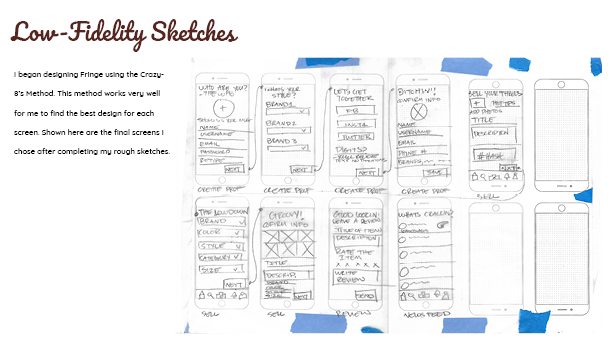 Low-Fidelity Sketches
I began designing Fringe using the Crazy-
8's Method. This method works very well
for me to find the best design for each
screen. Shown here are the final screens I
chose after completing my rough sketches.
WHO ARE YOU?
NAME
USERNAME
EMAIL
PASSWORD
NEXT
CREATE PROF
WHATS YOUR
STYLE?
BRAND 1
BRAND 2
BRAND 3
NEXT
CREATE PROF
LETS GET
TOGETHER
FB
INSTA
TWITTER
NEXT
CREATE PROF
CONFIRM INFO
NAME
USERNAME
EMAIL
PHONE #
BRANDS
SAVE
CREATE PROF
SELL YOUR THREADS
+ PHOTOS
ADD PHOTOS
TITLE
DESCRIPTION
#HASH
SELL
THE LOWDOWN
BRAND
COLOR
STYLE
CATEGORY
SIZE
NEXT
SELL
GROOVY!
CONFIRM INFO
TITLE
DESCRIP.
SELL
GOOD LOOKIN
LEAVE A REVIEW
TITLE OF ITEM
DESCRIPTION
RATE THE
ITEM
WRITE
REVIEW
SEND
REVIEW
WHATS CRACKIN?
NEWS FEED